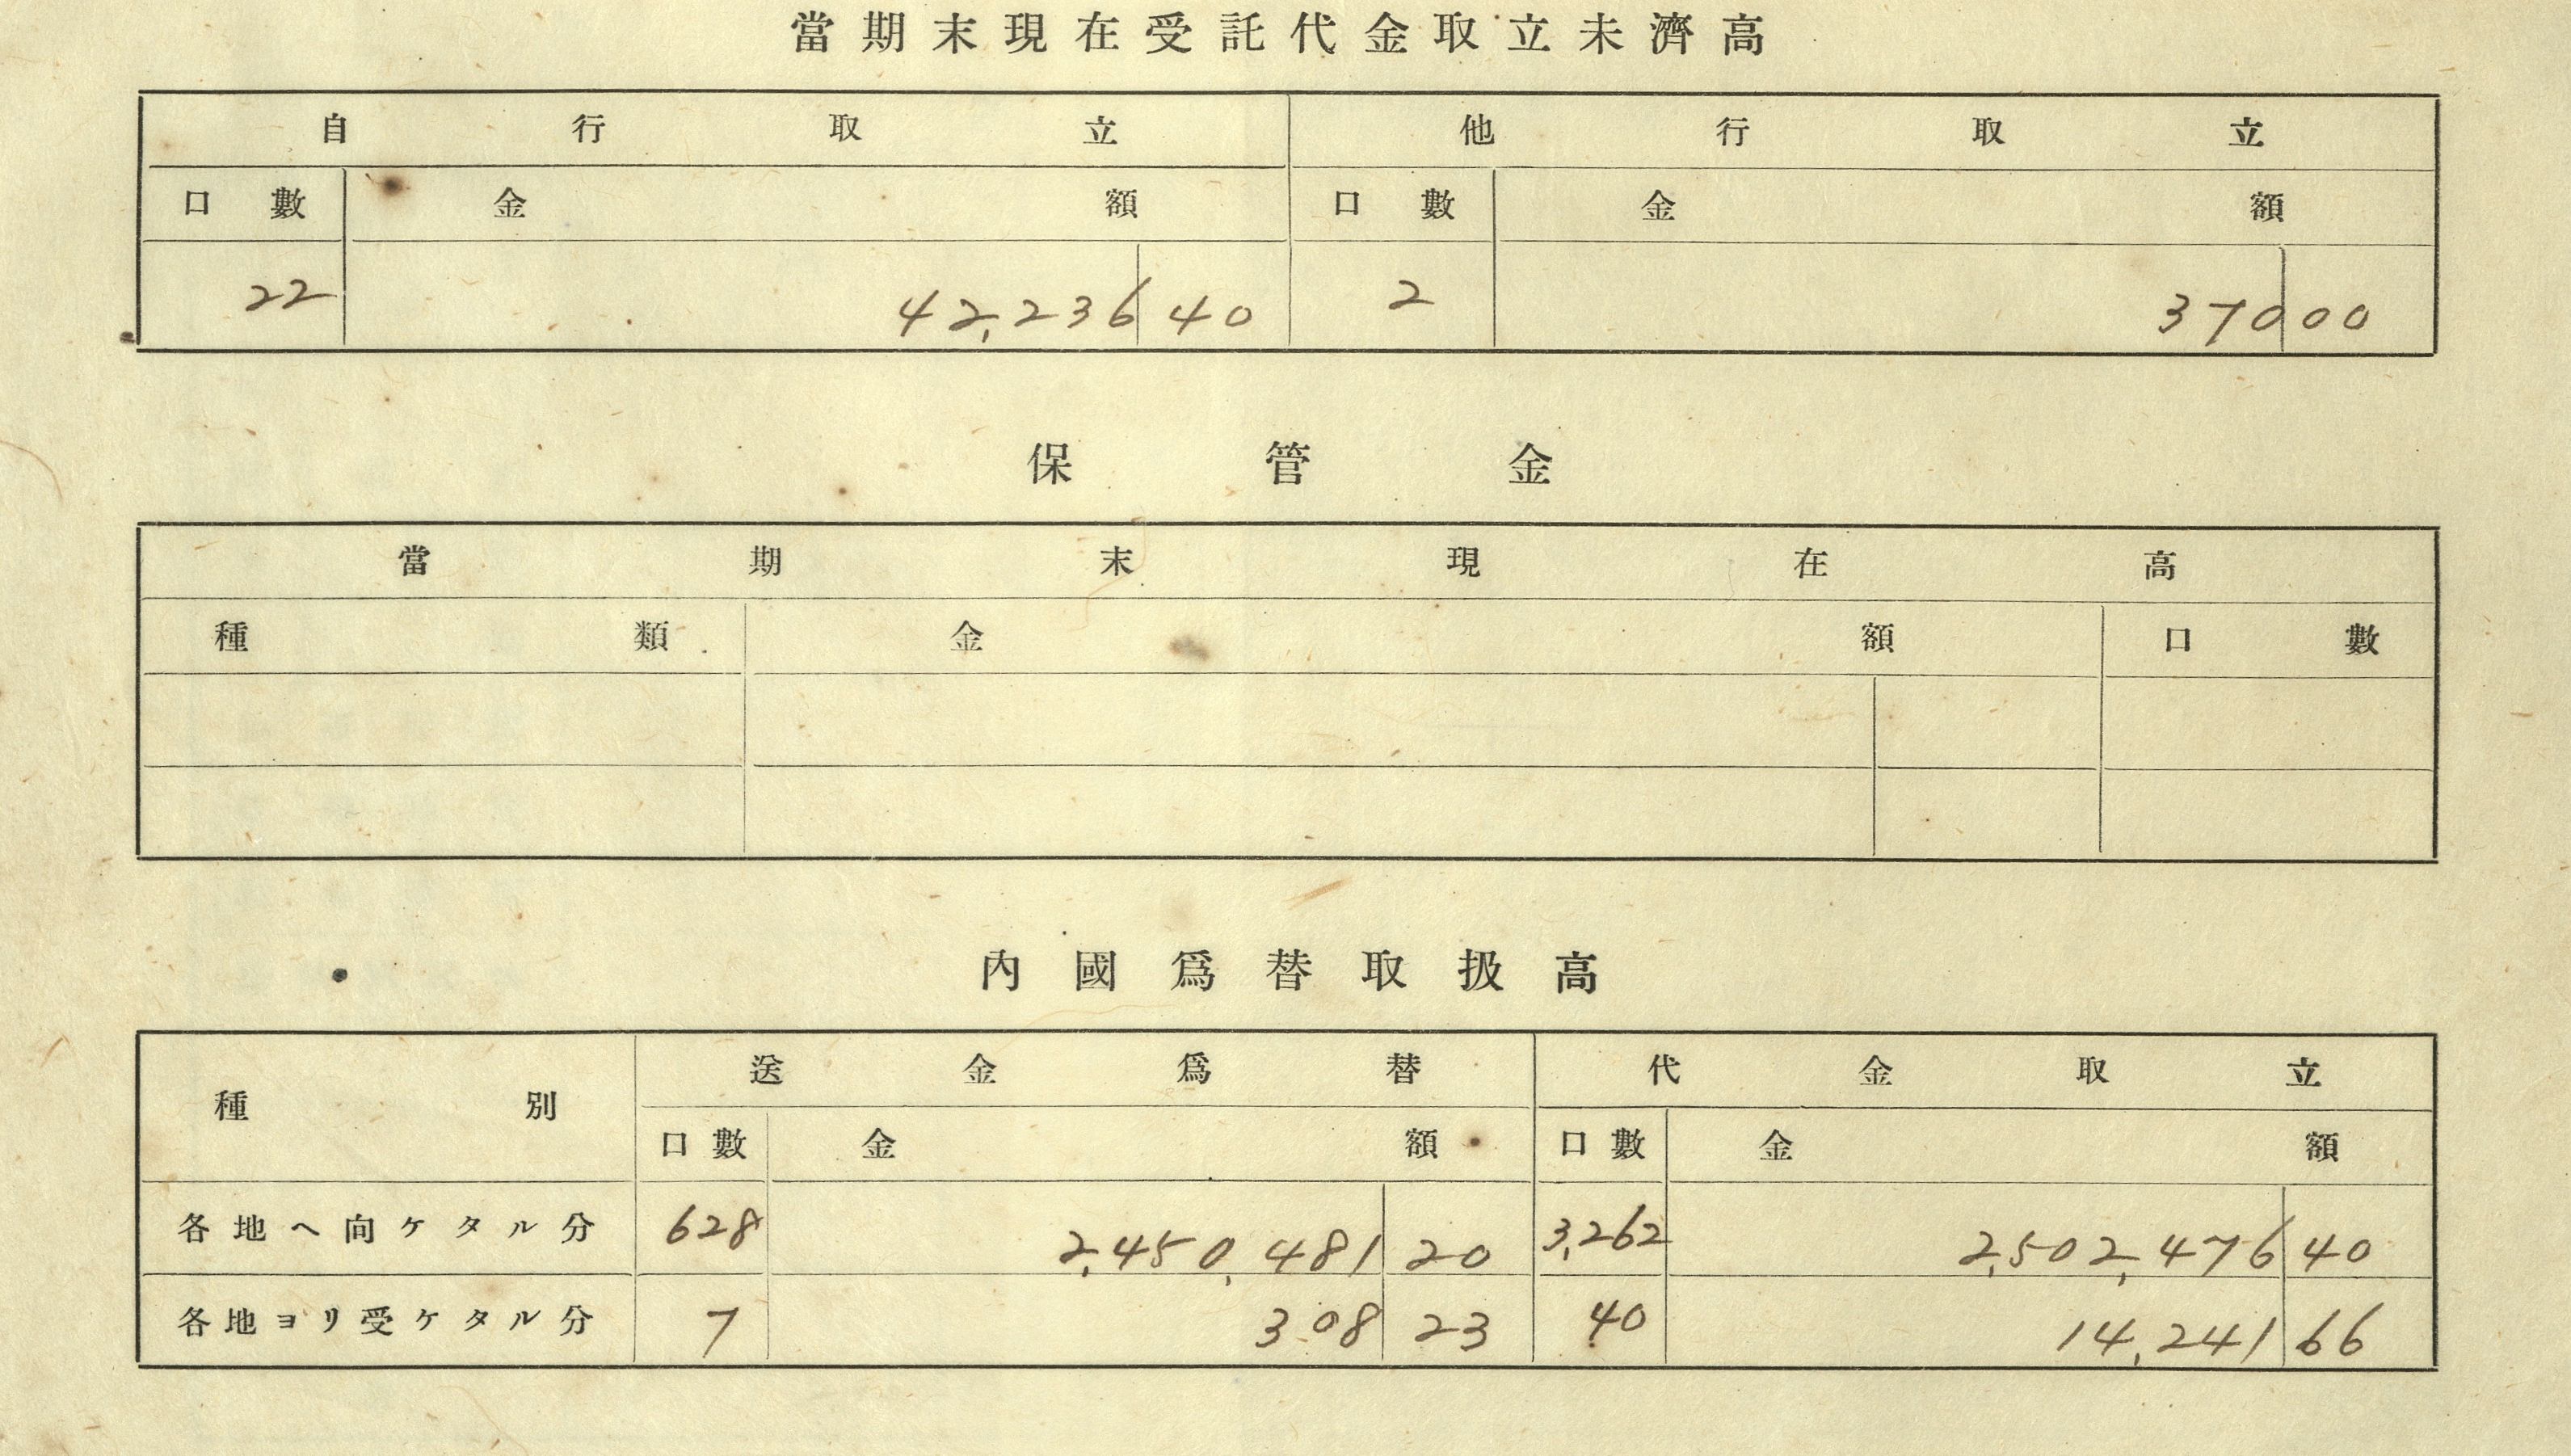 當期末現在受託代金取立未濟高
自行取立 他行取立
口數 金額 口數 金額
22 42,236 40 2 370 00
保管金
當期末現在高
種類 金額 口數
內國爲替取扱高
種別 送金爲替 代金取立
口數 金額 口數 金額
各地ヘ向ケタル分 628 2,450,481 20 3,262 2,502,476 40
各地ヨリ受ケタル分 7 308 23 40 14,241 66